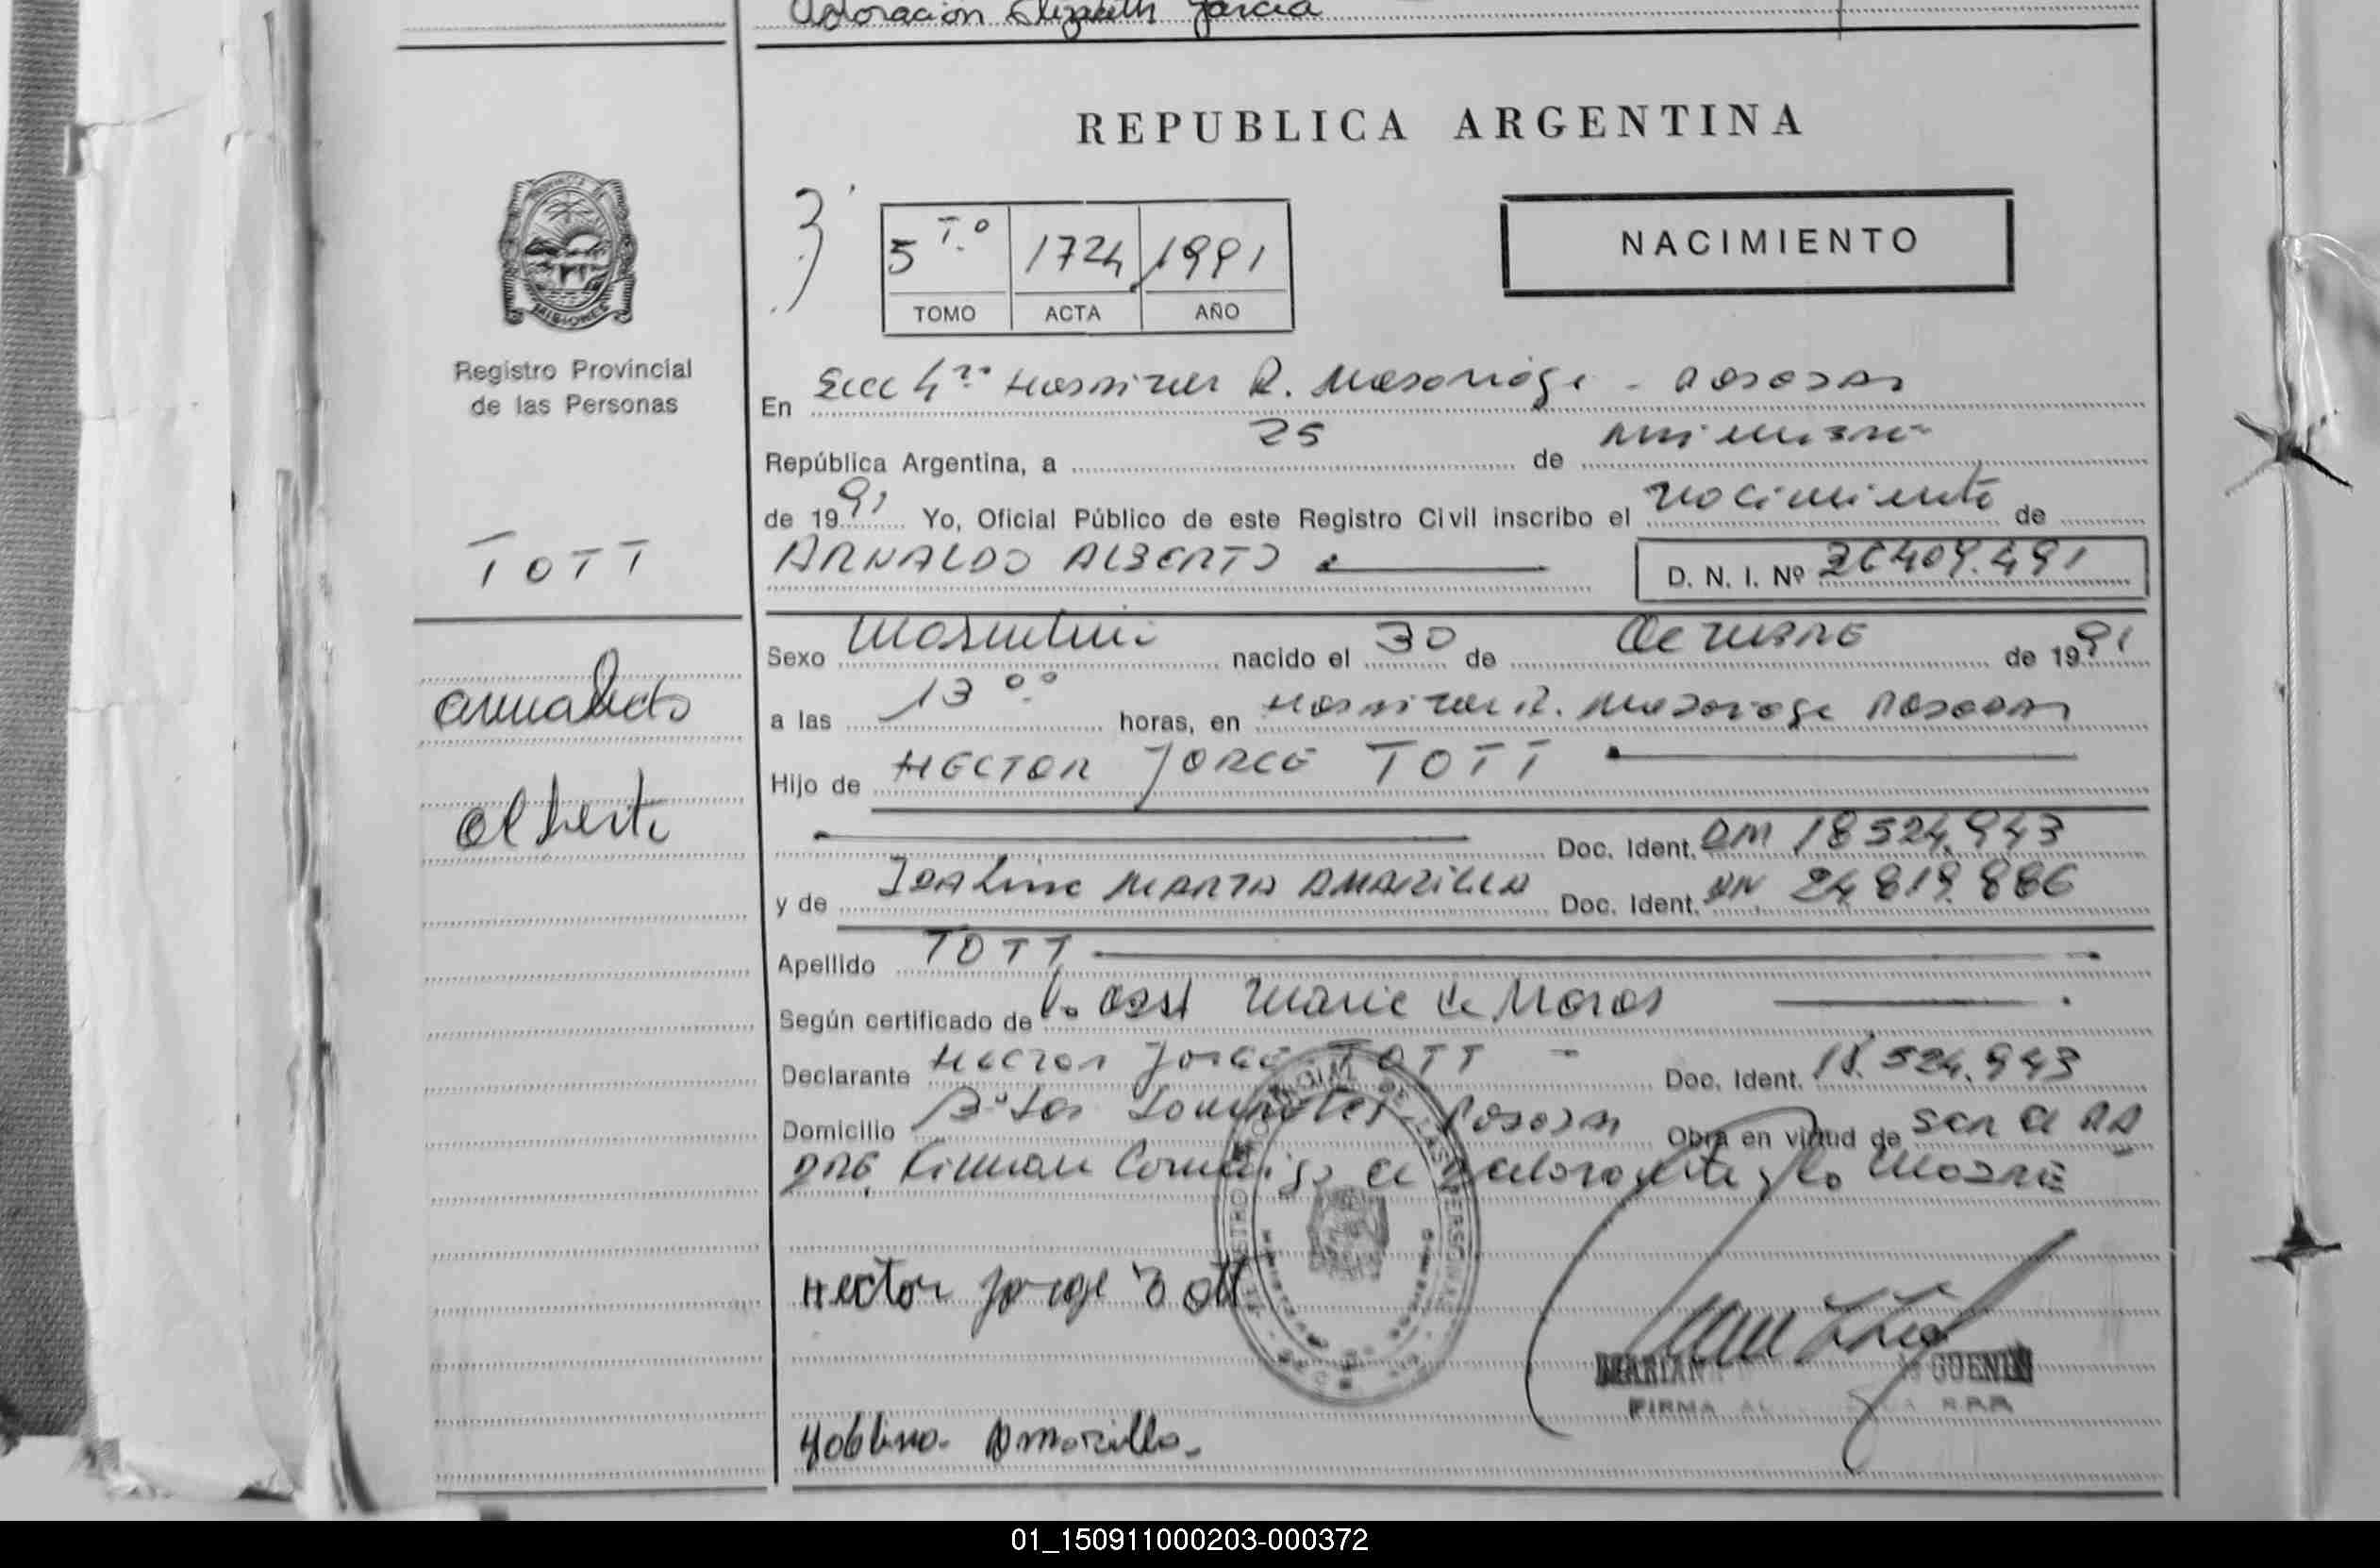 Adoracion Elizabeth Garcia
REPUBLICA ARGENTINA
PROVINCIA DE
MISIONES
Registro Provincial
de las Personas
5 T.º 1724 1991
TOMO ACTA AÑO
NACIMIENTO
En Secc 4ta Hospital R. Madariaga - Posadas
República Argentina, a 25 de Noviembre
de 1991 Yo, Oficial Público de este Registro Civil inscribo el nacimiento de
TOTT
ARNALDO ALBERTO
D. N. I. Nº 36409.491
Sexo Masculino nacido el 30 de OCTUBRE de 1991
Arnaldo
a las 13 º.º horas, en Hospital R. Madariaga Posadas
Hijo de HECTOR JORGE TOTT
Alberto
Doc. Ident. DM 18524.943
y de MARTA AMARILLA Doc. Ident. DN 24819.886
Apellido TOTT
Según certificado de la Obst Maria de Moras
Declarante HECTOR Jorge TOTT - Doc. Ident. 18.524.943
Domicilio Bº Los Posadas Obra en virtud de ser el PA
DRE, firman Conmigo el y la MADRE
Hector Jorge Tott
MARIAN GUENIN
FIRMA
Amarilla
01_150911000203-000372